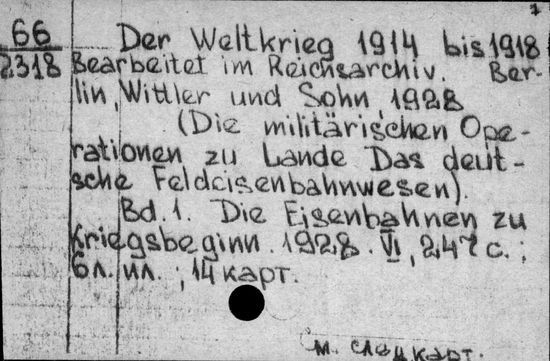 66
2318
Der Weltkrieg 1914 bis 1918
Bearbeitet im Reichsarchiv. Ber-
lin, Wittler und Sohn, 1928
(Die militärischen Ope-
rationen zu Lande Das deut-
sche Feldeisenbahnwesen).
Bd. 1. Die Eisenbahnen zu
Kriegsbeginn. 1928. VI, 247 с.;
6 л. ил.; 14 карт.
м. карт.